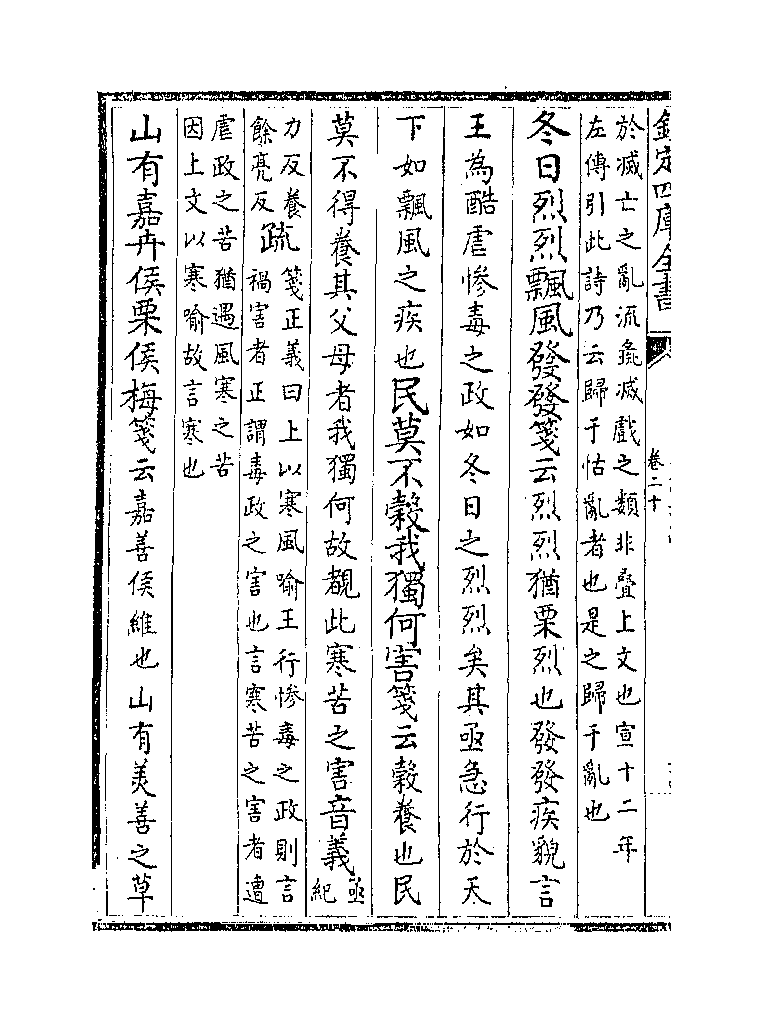 欽定四庫全書
卷二十
於滅亡之亂流彘滅戲之類非疊上文也宣十二年
左傳引此詩乃云歸于怙亂者也是之歸于亂也
冬日烈烈飄風發發箋云烈烈猶栗烈也發發疾貌言
王為酷虐慘毒之政如冬日之烈烈矣其亟急行於天
下如飄風之疾也民莫不穀我獨何害箋云穀養也民
莫不得養其父母者我獨何故覩此寒苦之害音義亟
紀
力反養
餘亮反
疏箋正義曰上以寒風喻王行慘毒之政則言
禍害者正謂毒政之害也言寒苦之害者遭
虐政之苦猶遇風寒之苦
因上文以寒喻故言寒也
山有嘉卉侯栗侯梅箋云嘉善侯維也山有美善之草